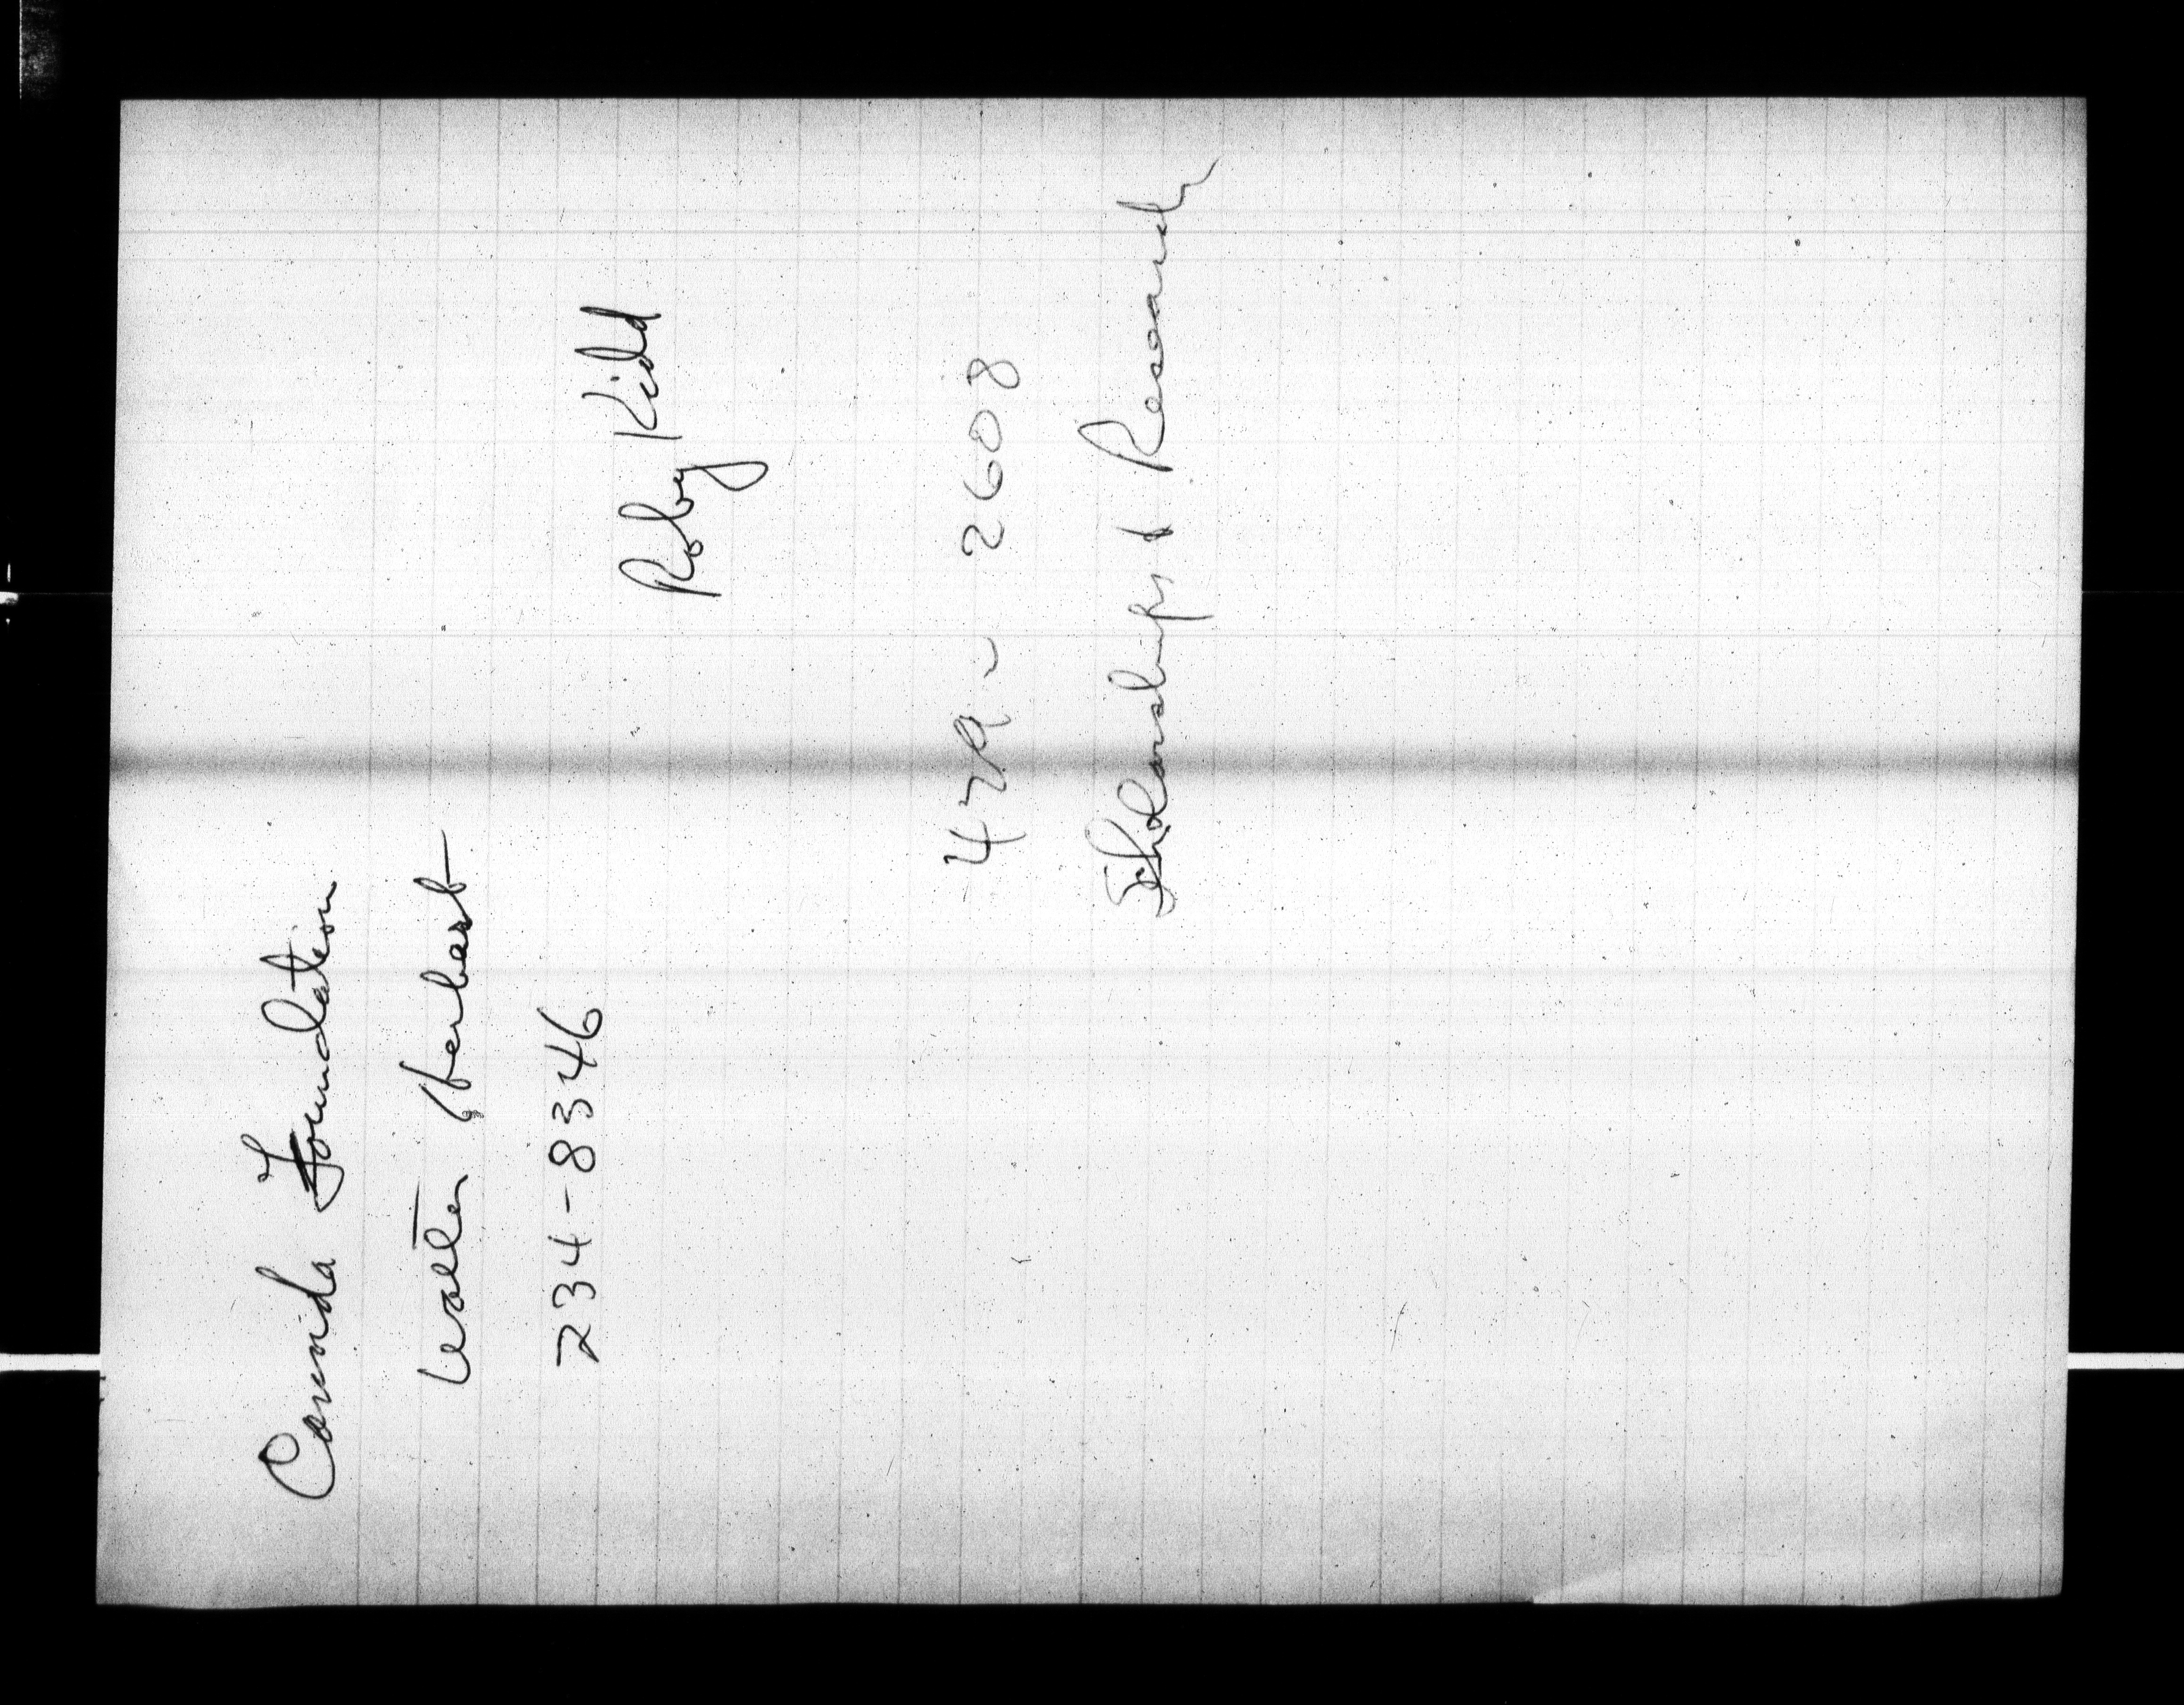 Canada Foundation
Walter Herbert
234-8346
Roby Kidd
479-2608
Scholarships & Research